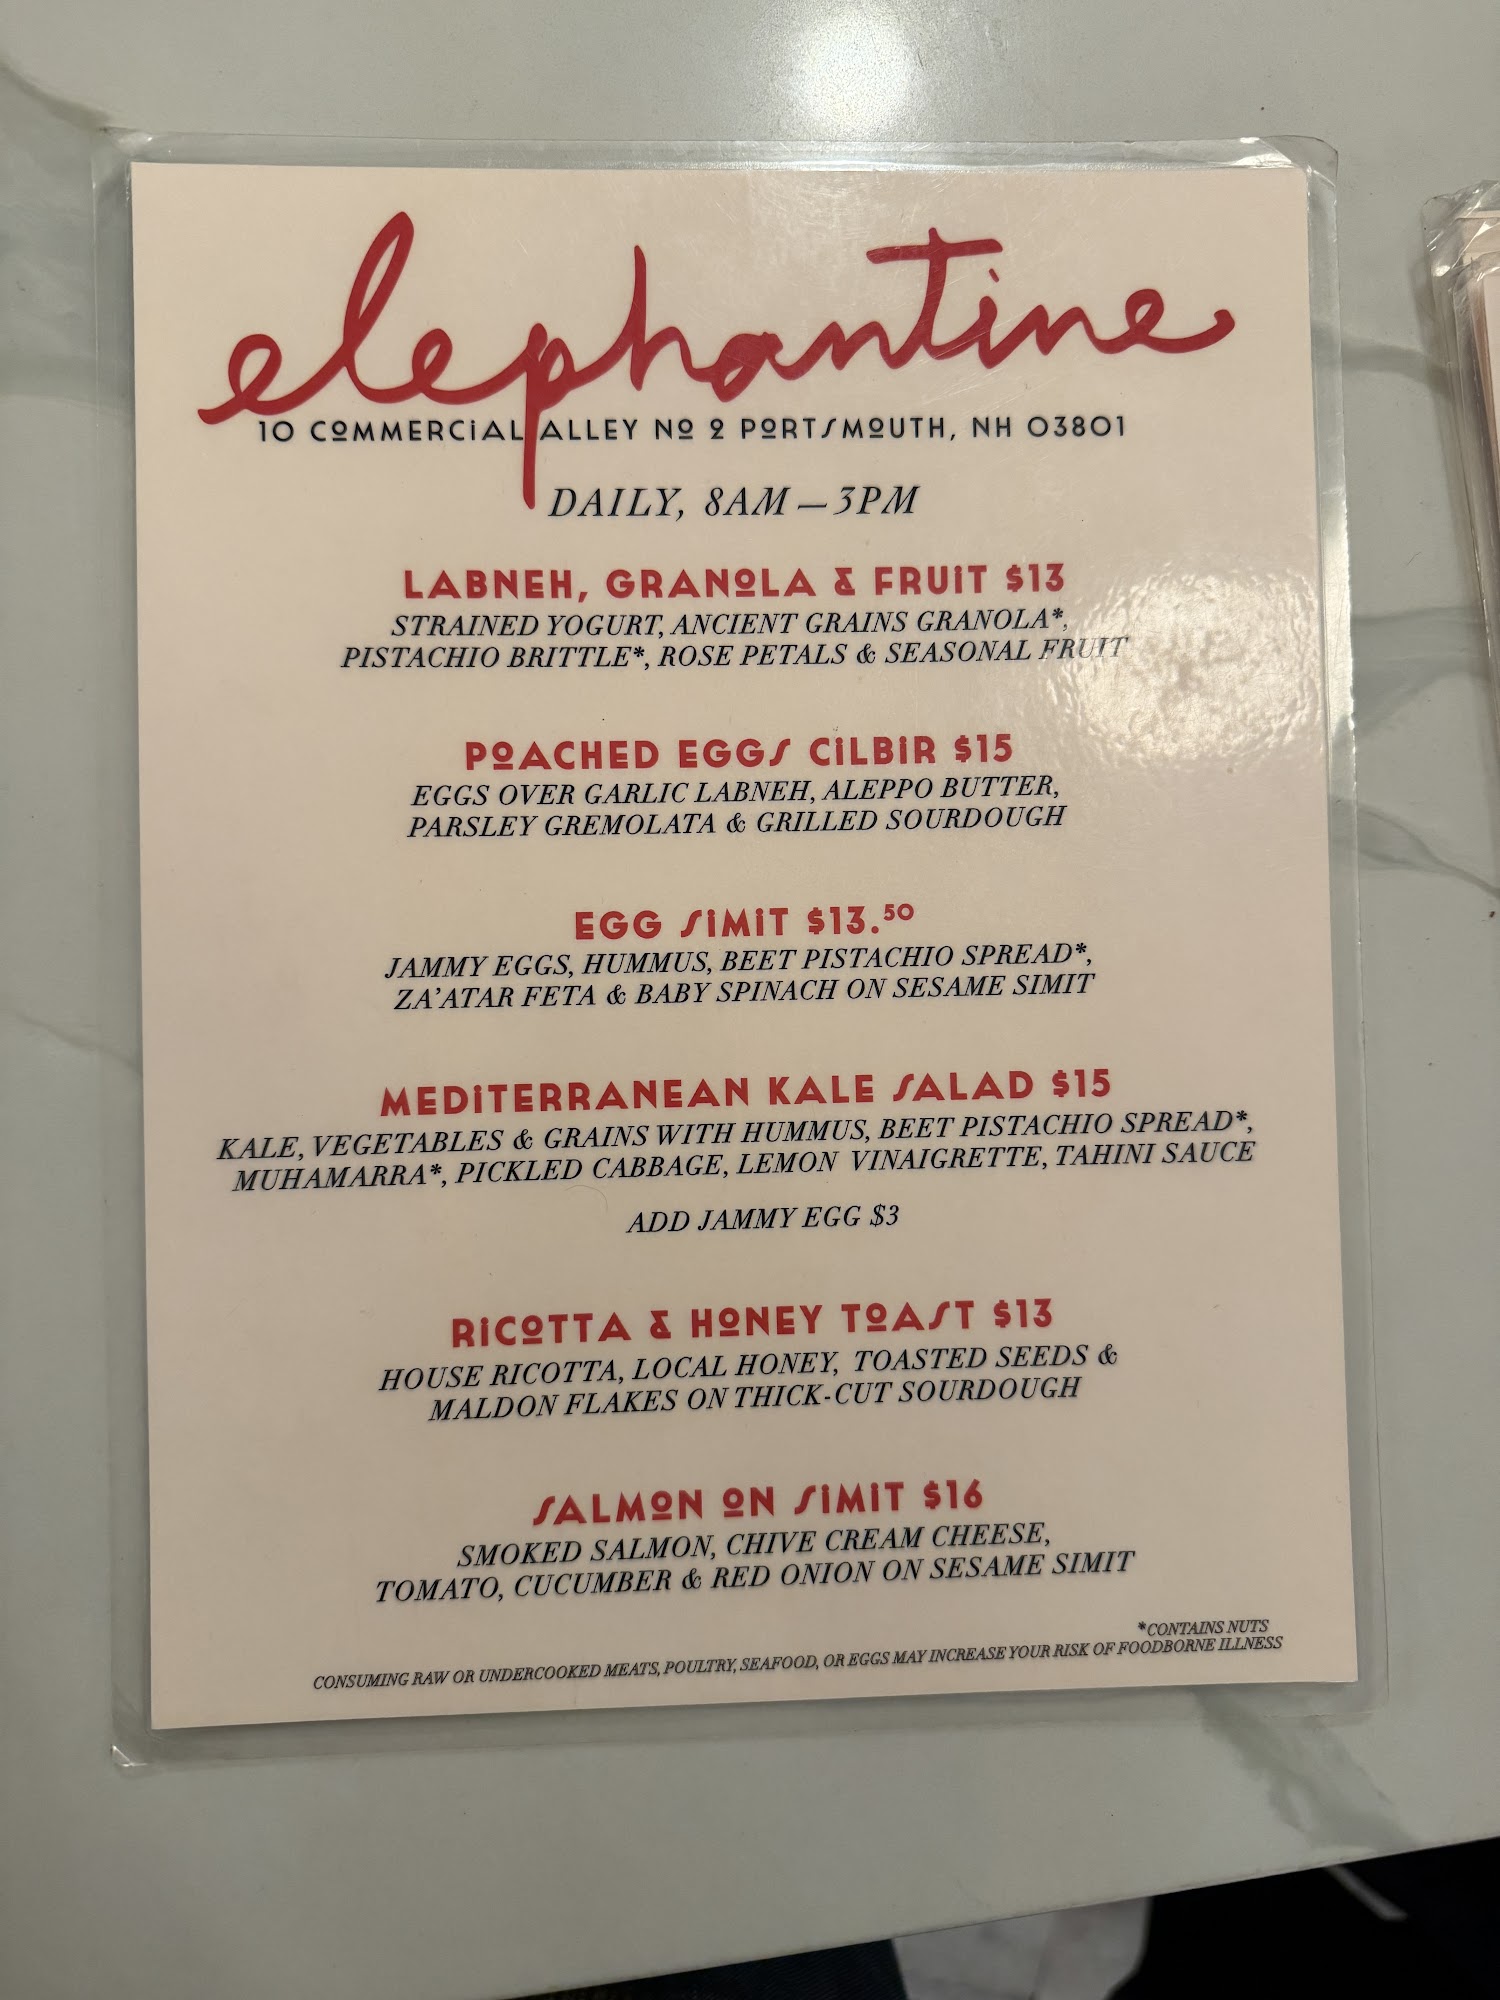 elephantine
10 COMMERCIAL ALLEY Nº 2 PORTSMOUTH, NH 03801
DAILY, 8AM — 3PM
LABNEH, GRANOLA & FRUIT $13
STRAINED YOGURT, ANCIENT GRAINS GRANOLA*,
PISTACHIO BRITTLE*, ROSE PETALS & SEASONAL FRUIT
POACHED EGGS CILBIR $15
EGGS OVER GARLIC LABNEH, ALEPPO BUTTER,
PARSLEY GREMOLATA & GRILLED SOURDOUGH
EGG SIMIT $13.50
JAMMY EGGS, HUMMUS, BEET PISTACHIO SPREAD*,
ZA'ATAR FETA & BABY SPINACH ON SESAME SIMIT
MEDITERRANEAN KALE SALAD $15
KALE, VEGETABLES & GRAINS WITH HUMMUS, BEET PISTACHIO SPREAD*,
MUHAMARRA*, PICKLED CABBAGE, LEMON VINAIGRETTE, TAHINI SAUCE
ADD JAMMY EGG $3
RICOTTA & HONEY TOAST $13
HOUSE RICOTTA, LOCAL HONEY, TOASTED SEEDS &
MALDON FLAKES ON THICK-CUT SOURDOUGH
SALMON ON SIMIT $16
SMOKED SALMON, CHIVE CREAM CHEESE,
TOMATO, CUCUMBER & RED ONION ON SESAME SIMIT
*CONTAINS NUTS
CONSUMING RAW OR UNDERCOOKED MEATS, POULTRY, SEAFOOD, OR EGGS MAY INCREASE YOUR RISK OF FOODBORNE ILLNESS